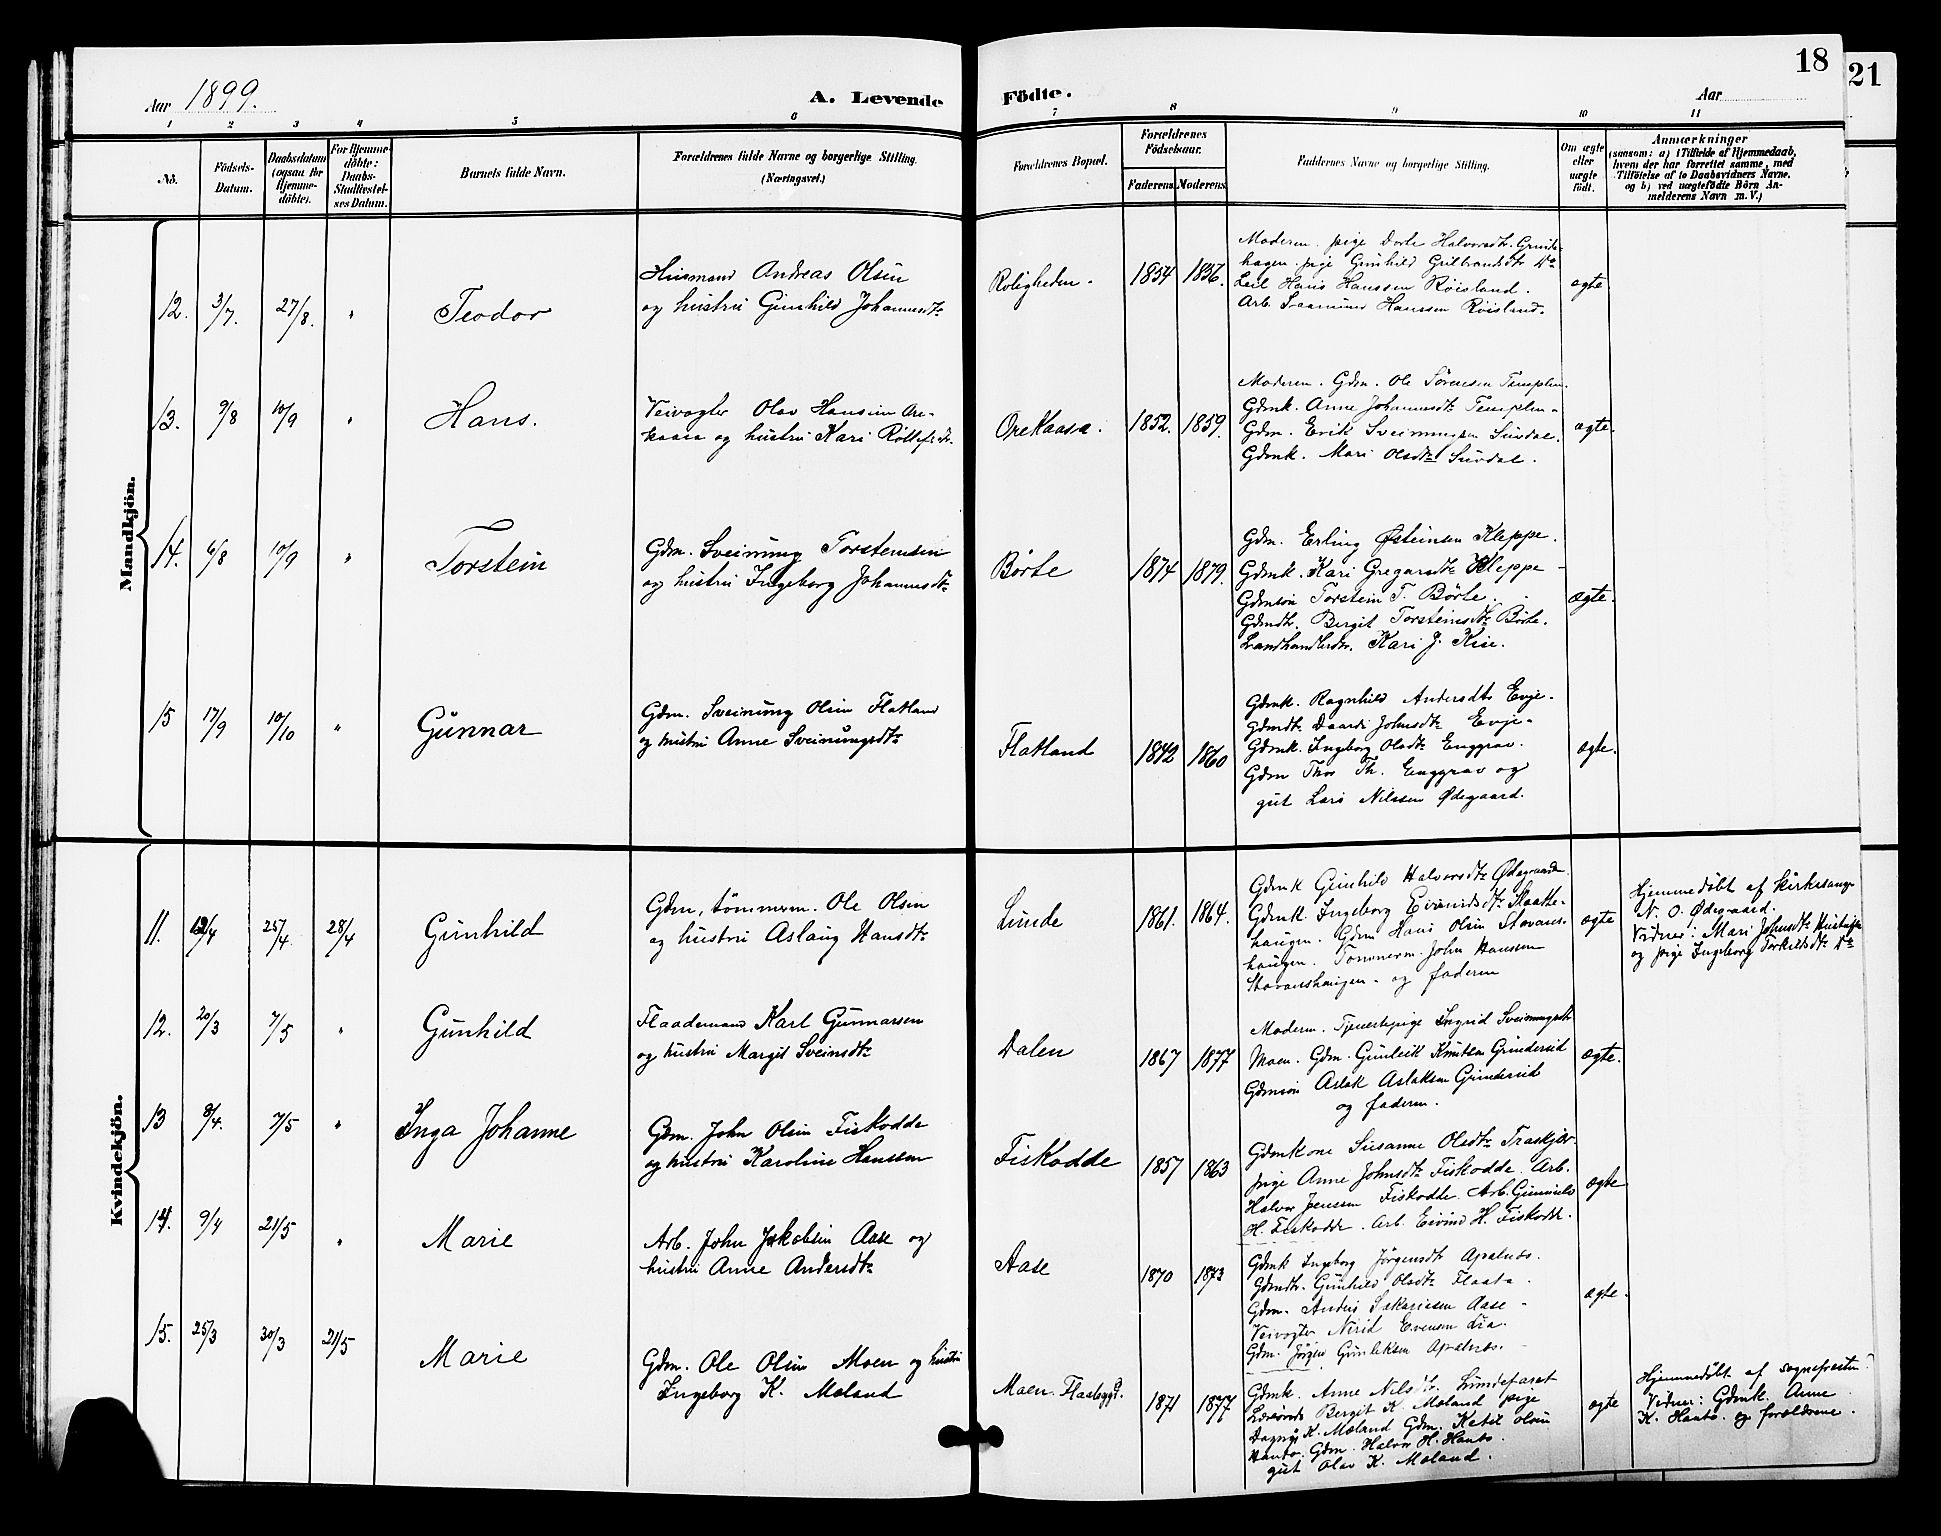 Aar 1899.
A. Levende Födte.
Aar
18
21
1 2 3 4 5 6 7 8 9 10 11
No.
Födsels-
Datum.
Daabsdatum
(ogsaa for
Hjemme-
döbte).
For Hjemme-
döbte:
Daabs-
Stadfæstel-
ses Datum.
Barnets fulde Navn.
Forældrenes fulde Navne og borgerlige Stilling.
(Næringsvei.)
Forældrenes Bopæl.
Forældrenes
Födselsaar.
Faderens. Moderens.
Faddernes Navne og borgerlige Stilling.
Om ægte
eller
uægte
födt.
Anmærkninger
(saasom: a) i Tilfælde af Hjemmedaab,
hvem der har forrettet samme, med
Tilföielse af to Daabsvidners Navne.
og b) ved uægtefödte Börn An-
melderens Navn m. V.)
Mandkjön.
12. 3/7. 27/8. " Teodor
Husmand Andreas Olsen
og hustru Gunhild Johannesdtr
Roligheden. 1854 1856.
Moderen. pige Dorte Halvorsdtr. Grinde-
hagen. pige Gunhild Gulbrandsdtr Do
Leil Hans Hanssen Röisland.
Arb. Saamund Hanssen Röisland.
ægte
13. 9/8 10/9 " Hans.
Veivogter Olav Hansen Ore-
kaasa og hustru Kari
Orekaasa. 1852. 1859.
Moderen. Gdm. Ole Sörensen Templen.
Gdmk. Anne Johannesdtr Templen.
Gdm. Erik Sveinungsen Suvdal.
Gdmk. Mari Olsdtr Suvdal.
ægte.
14. 6/8 10/9 " Torstein
Gdm. Sveinung Torsteinsen
og hustru Ingeborg Johannesdtr
Börte 1874 1879.
Gdm. Erling Østeinsen Kleppe.
Gdmk. Kari Gregarsdtr Kleppe
Gdmsön Torstein T. Börte.
Gdmdtr. Bergit Torsteinsdtr Börte.
Landhandlerdtr. Kari J. Kise.
ægte.
15 17/9 10/10 " Gunnar
Gdm. Sveinung Olsen Flatland
og hustru Anne Sveinungsdtr
Flatland 1842 1860
Gdmk. Ragnhild Andersdtr Evje.
Gdmdtr Daardi Johnsdtr Evje.
Gdmk. Ingeborg Olsdtr Enggrav.
Gdm Thor Th. Enggrav og
gut Lars Nilssen Ødegaard.
ægte.
Kvindekjön.
11. 12/4 25/4. 28/4 Gunhild
Gdm, tömmerm. Ole Olsen
og hustru Aslaug Hansdtr
Lunde 1861. 1864.
Gdmk Gunhild Halvorsdtr Ødegaarden
Gdmk. Ingeborg Eivindsdtr Slaatte-
haugen. Gdm Hans Olsen Stavans-
haugen. Tommerm. John Hansen
Stavanshaugen. og faderen
ægte
Hjemmedöbt af kirkesanger
N. O. Ødegaard.
Vidner: Mari Johnsdtr
og pige Ingeborg Torkilsdtr Do
12. 20/3 7/5 " Gunhild
Flaademand Karl Gunnarsen
og hustru Margit Sveinsdtr
Dalen 1867 1877
Moderen. Tjenestepige Ingrid Sveinungsdtr
Moen. Gdm. Gunleik Knutsen Grinderud
Gdmsön Aslak Aslaksen Grinderud
og faderen.
ægte.
13 8/4. 7/5 " Inga Johanne
Gdm. John Olsen Fiskodde
og hustru Karoline Hanssen
Fiskodde 1857 1863
Gdmkone Susanne Olsdtr Traskjær
pige Anne Johnsdtr Fiskodde. Arb.
Halvor Jenssen Fiskodde. Arb. Gunnuld
H. Fiskodde. Arb. Eivind H. Fiskodde.
ægte
14. 9/4 21/5 " Marie
Arb. John Jakobsen Aase og
hustru Anne Andersdtr
Aase 1870 1873
Gdmk Ingeborg Jörgensdtr Apalnæs.
Gdmdtr. Gunhild Olsdtr Flaata.
Gdm. Anders Sakariasen Aase
Veivogter Nirid Evensen Lia.
Gdm. Jörgen Gunleksen Apalnæs.
ægte.
15. 25/3 30/3 21/5 Marie
Gdm. Ole Olsen Moen og hustru
Ingeborg K. Moland
Moen. Flaabygd. 1871 1877
Gdmk. Anne Nilsdtr. Lundefaret
Bergit K. Moland pige
Dagny K. Moland Gdm. Ketil Olsen
Hauto. Gdm. Halvor H. Hauto.
gut Olav K. Moland.
ægte
Hjemmedöbt af sognepresten.
Vidner: Gdmk. Anne
K. Hauto. og forældrene.